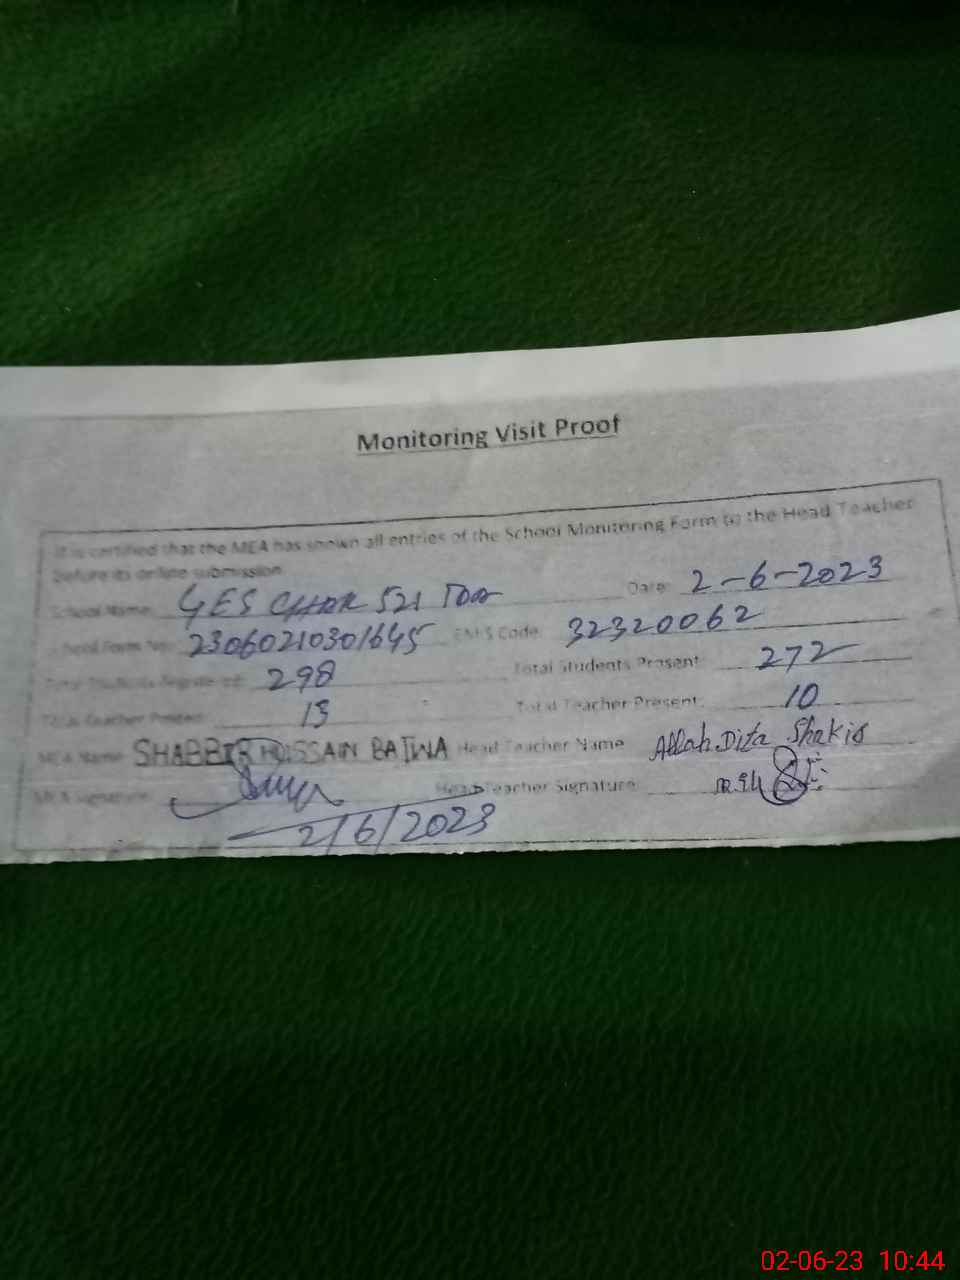 Monitoring Visit Proof
It is certified that the MEA has shown all entries of the School Monitoring Form to the Head Teacher
before its online submission
School Name: GES CHAK 521 Date: 2-6-2023
School Form No: 23060210301645 EMIS Code: 32320062
298 Total Students Present: 272
Total Teacher Posted: 13 Total Teacher Present: 10
MEA Name: SHABBIR HUSSAIN BAJWA Head Teacher Name Allah Ditta Shakir
MEA Signature: Head Teacher Signature:
2/6/2023
02-06-23 10:44